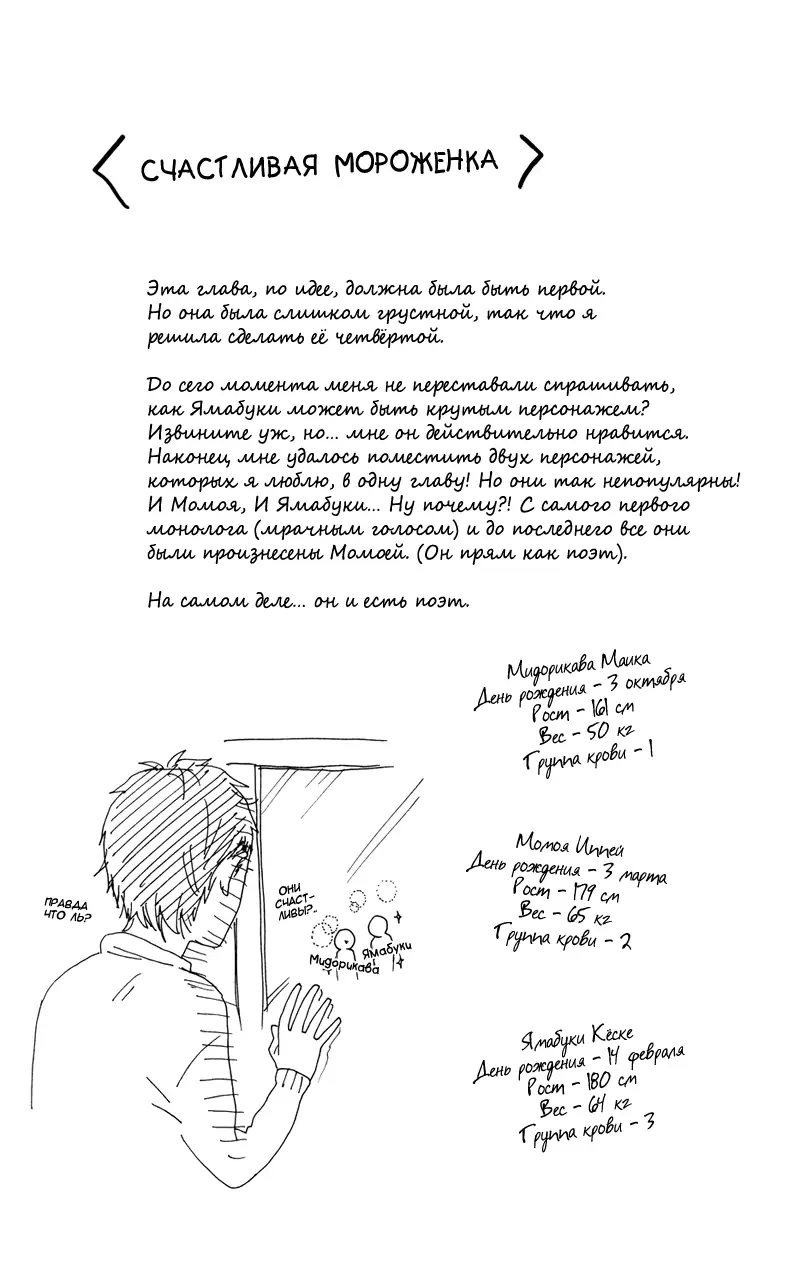 СЧАСТЛИВАЯ МОРОЖЕНКА
Эта глава, по идее, должна была быть первой.
Но она была слишком грустной, так что я
решила сделать её четвёртой.
До сего момента меня не переставали спрашивать,
как Ямабуки может быть крутым персонажем?
Извините уж, но... мне он действительно нравится.
Наконец, мне удалось поместить двух персонажей,
которых я люблю, в одну главу! Но они так непопулярны!
И Момоя, И Ямабуки... Ну почему?! С самого первого
монолога (мрачным голосом) и до последнего все они
были произнесены Момоей. (Он прям как поэт).
На самом деле... он и есть поэт.
Мидорикава Маика
День рождения – 3 октября
Рост – 161 см
Вес – 50 кг
Группа крови – 1
Момоя Иппей
День рождения – 3 марта
Рост – 179 см
Вес – 65 кг
Группа крови – 2
ПРАВДА
ЧТО ЛЬ?
ОНИ
СЧАСТ-
ЛИВЫ?..
Мидорикава
Ямабуки
Ямабуки Кёске
День рождения – 14 февраля
Рост – 180 см
Вес – 64 кг
Группа крови – 3